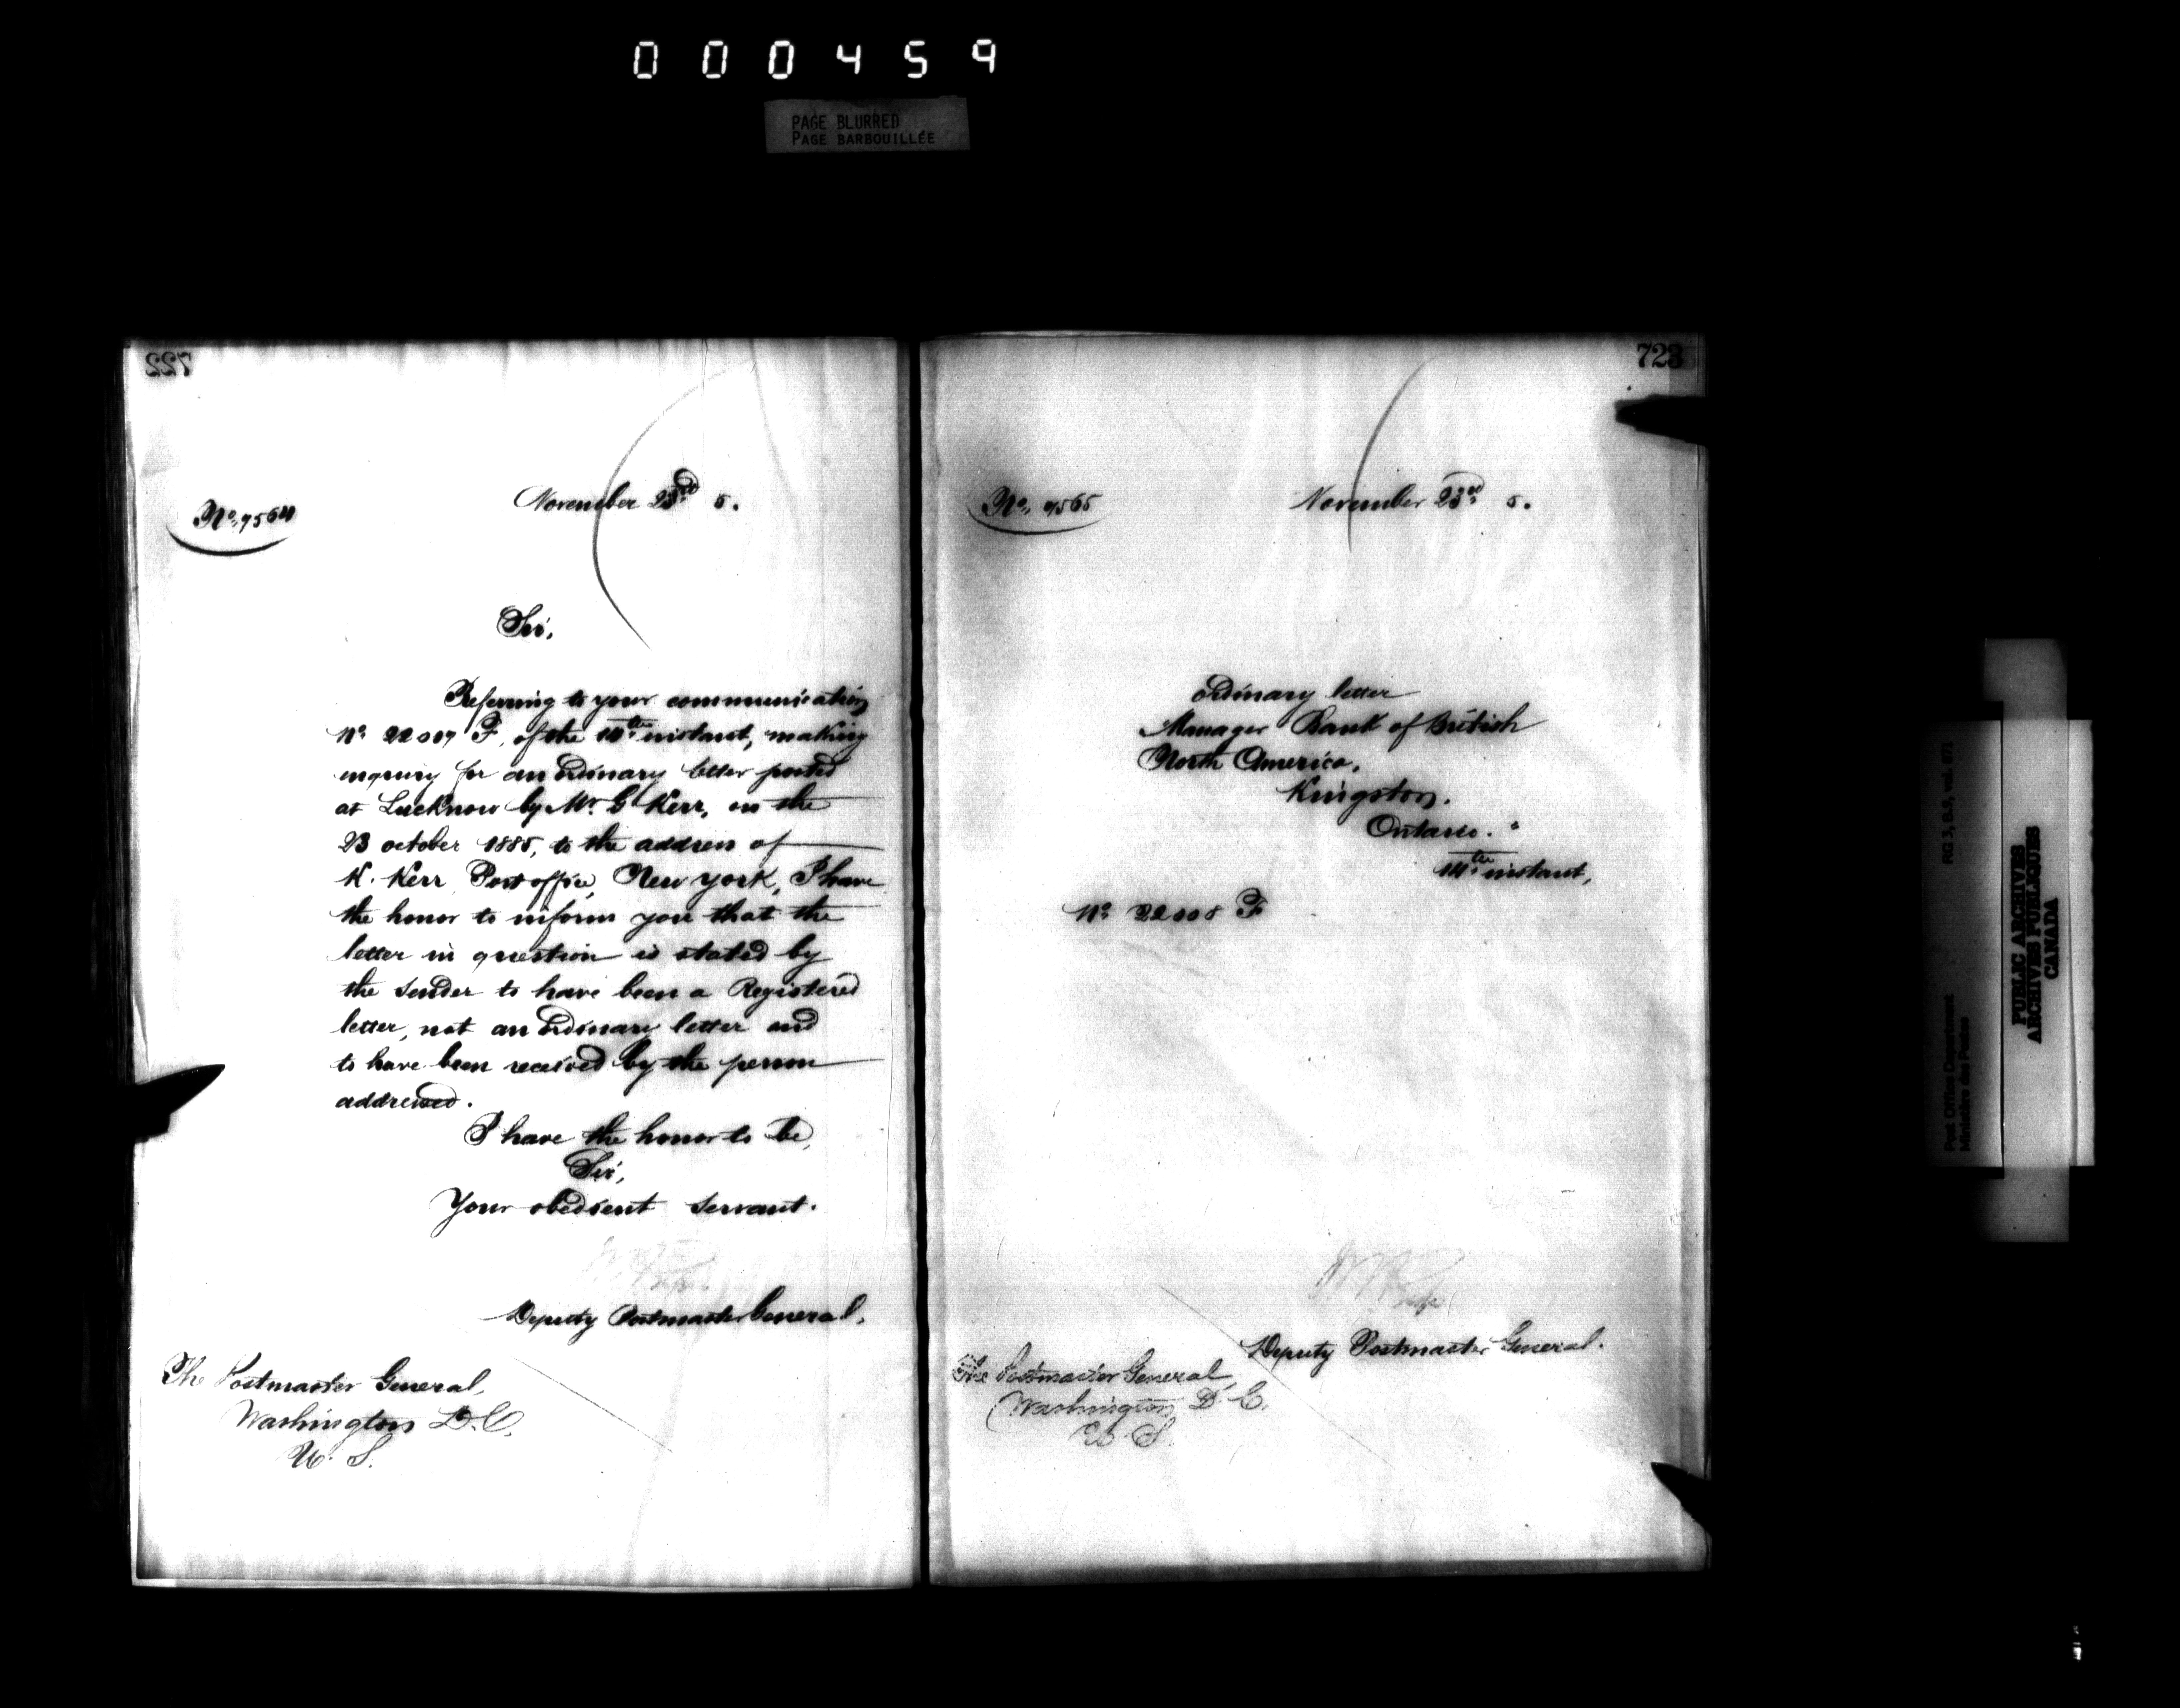 000459
PAGE BLURRED
PAGE BARBOUILLÉE
722
November 23rd 5.
No. 9564
Sir,
Referring to your communication
No. 22007 F, of the 14th instant, making
inquiry for an ordinary letter posted
at Lucknow by Mr. G Kerr, on the
23 october 1885, to the address of
K. Kerr Post office, New York, I have
the honor to inform you that the
letter in question is stated by
the sender to have been a Registered
letter, not an ordinary letter and
to have been received by the person
addressed.
I have the honor to be,
Sir,
Your obedient servant.
Deputy Postmaster General.
The Postmaster General,
Washington D.C.
U. S.
723
No. 9565
November 23rd 5.
ordinary letter
Manager Bank of British
North America,
Kingston.
Ontario.
14th instant,
No. 22008 F
Deputy Postmaster General.
The Postmaster General,
Washington D. C.
U. S.
Post Office Department
Ministère des Postes
RG 3, B.9, vol. 871
PUBLIC ARCHIVES
ARCHIVES PUBLIQUES
CANADA